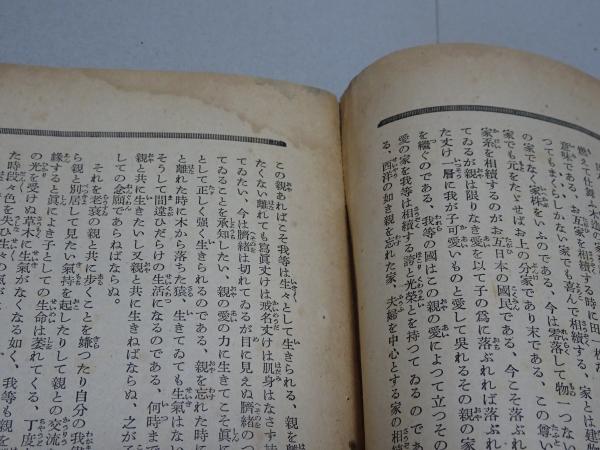 燃えて仕舞ふ木造の家
意味である、お互家を相續する時に田
つてもまくらしかない家でも喜んで相續する、家とは建物
の家でなく家柄をいふのである、今は零落して物一つない
家でも元をたゞせばお上の分家であり末である、この尊い
家系を相續するのがお互日本の國民である、今こそ落ぶれ
てゐるが親は限りなき愛を以て子の爲に落ぶれれば落ぶれ
た丈け一層に我が子可愛いものと愛して呉れるその親の家
を繼ぐのである、我等の國はこの親の愛によつて立つその
愛の家を我等は相續する誇と光榮とを持つてゐるのであ
る、西洋の如き親を忘れた家、夫婦を中心とする家の相續
この親あればこそ我等は生々として生きられる、親を離
たくない離れても寫眞丈けは戒名丈けは肌身はなさず持
てゐたい、今は臍緒は切れてゐるが目に見えぬ臍緒のつ
てゐることを承知したい、親の愛の力に生きてこそ眞に
として正しく強く生きられるのである、親を忘れた時に
と離れた時に木から落ちた猿、生きてゐても生氣はない
そして間違ひだらけの生活になるのである、何時まで
親と共に生きたいし又親と共に生きねばならぬ、之が子
しての念願であらねばならぬ。
それを老衰の親と共に歩くことを嫌つたり自分の我儘
ら親と別居して見たい氣持を起したりして親との交流を
縁すると眞によき子としての生命は萎れてくる、丁度
の光を受けぬ木に生氣がなくなる如く、我等も親
た時段々色を失ひ生々の氣が